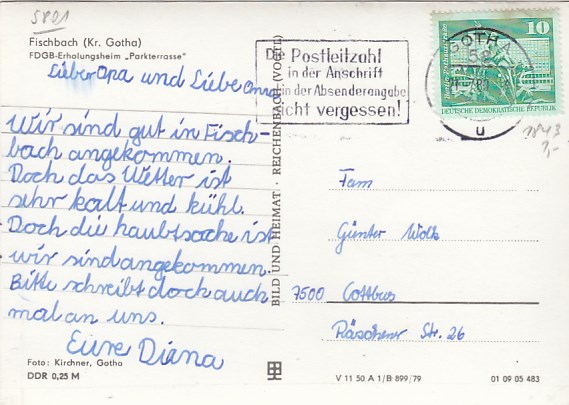 5801
Fischbach (Kr. Gotha)
FDGB-Erholungsheim „Parkterrasse"
Lieber Opa und Liebe oma
Wir sind gut in Fisch-
bach angekommen.
Doch das Wetter ist
sehr kalt und kühl.
Doch die haubtsache ist
wir sind angekommen.
Bitte schreibt doch auch
mal an uns.
Eure Diana
Foto: Kirchner, Gotha
DDR 0,25 M
BILD UND HEIMAT · REICHENBACH (VOGTL)
Die Postleitzahl
in der Anschrift
in der Absenderangabe
nicht vergessen!
GOTHA
58
u
10
DEUTSCHE DEMOKRATISCHE REPUBLIK
1843
Fam
Günter Wolk
7500 Cottbus
Räschener Str. 26
V 11 50 A 1/B 899/79
01 09 05 483